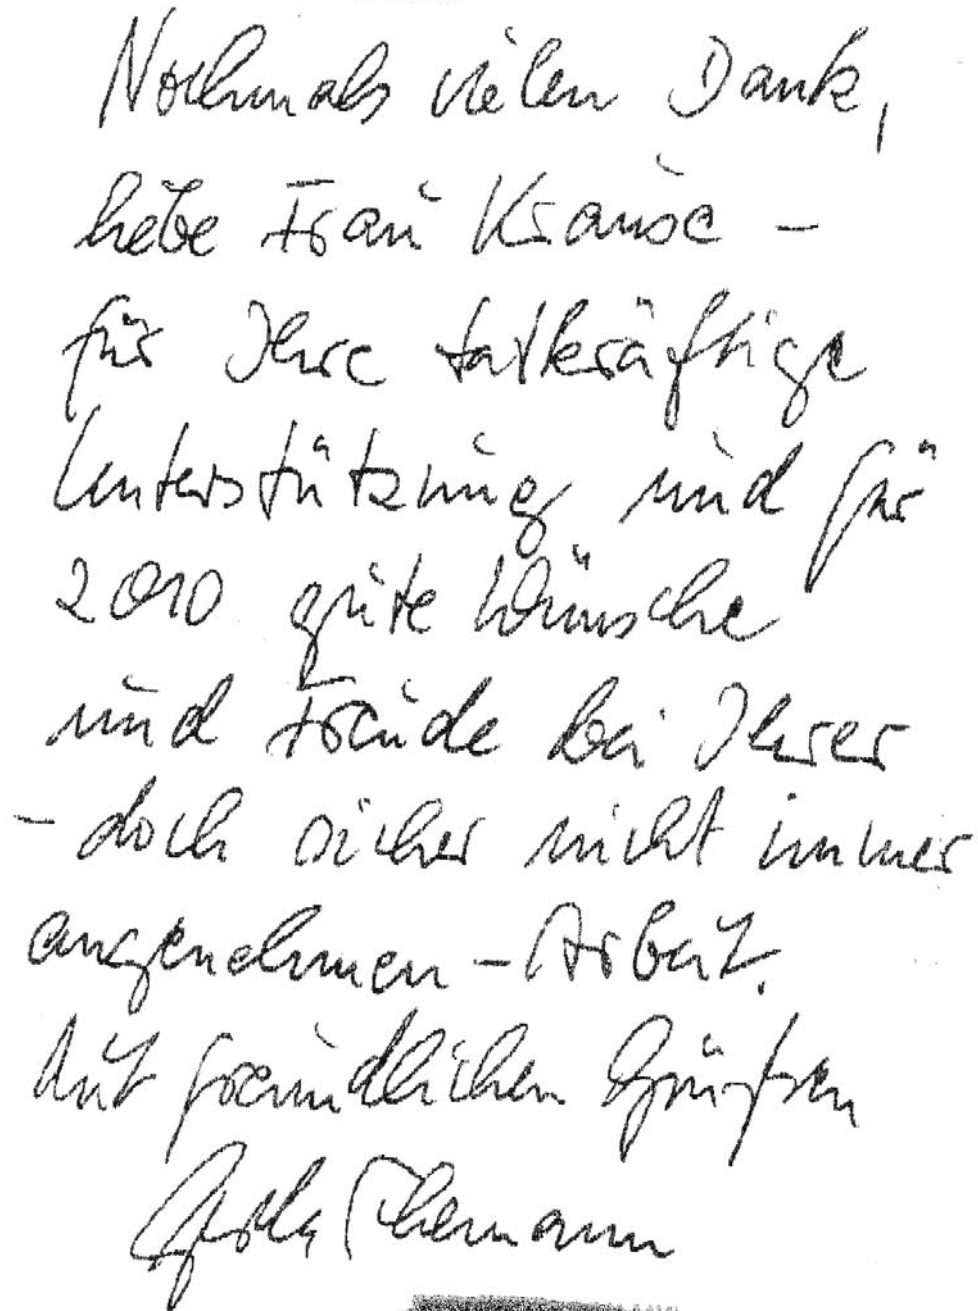 Nochmals vielen Dank,
liebe Frau Krause –
für Ihre tatkräftige
Unterstützung und für
2010 gute Wünsche
und Freude bei Ihrer
– doch sicher nicht immer
angenehmen – Arbeit.
Mit freundlichen Grüßen